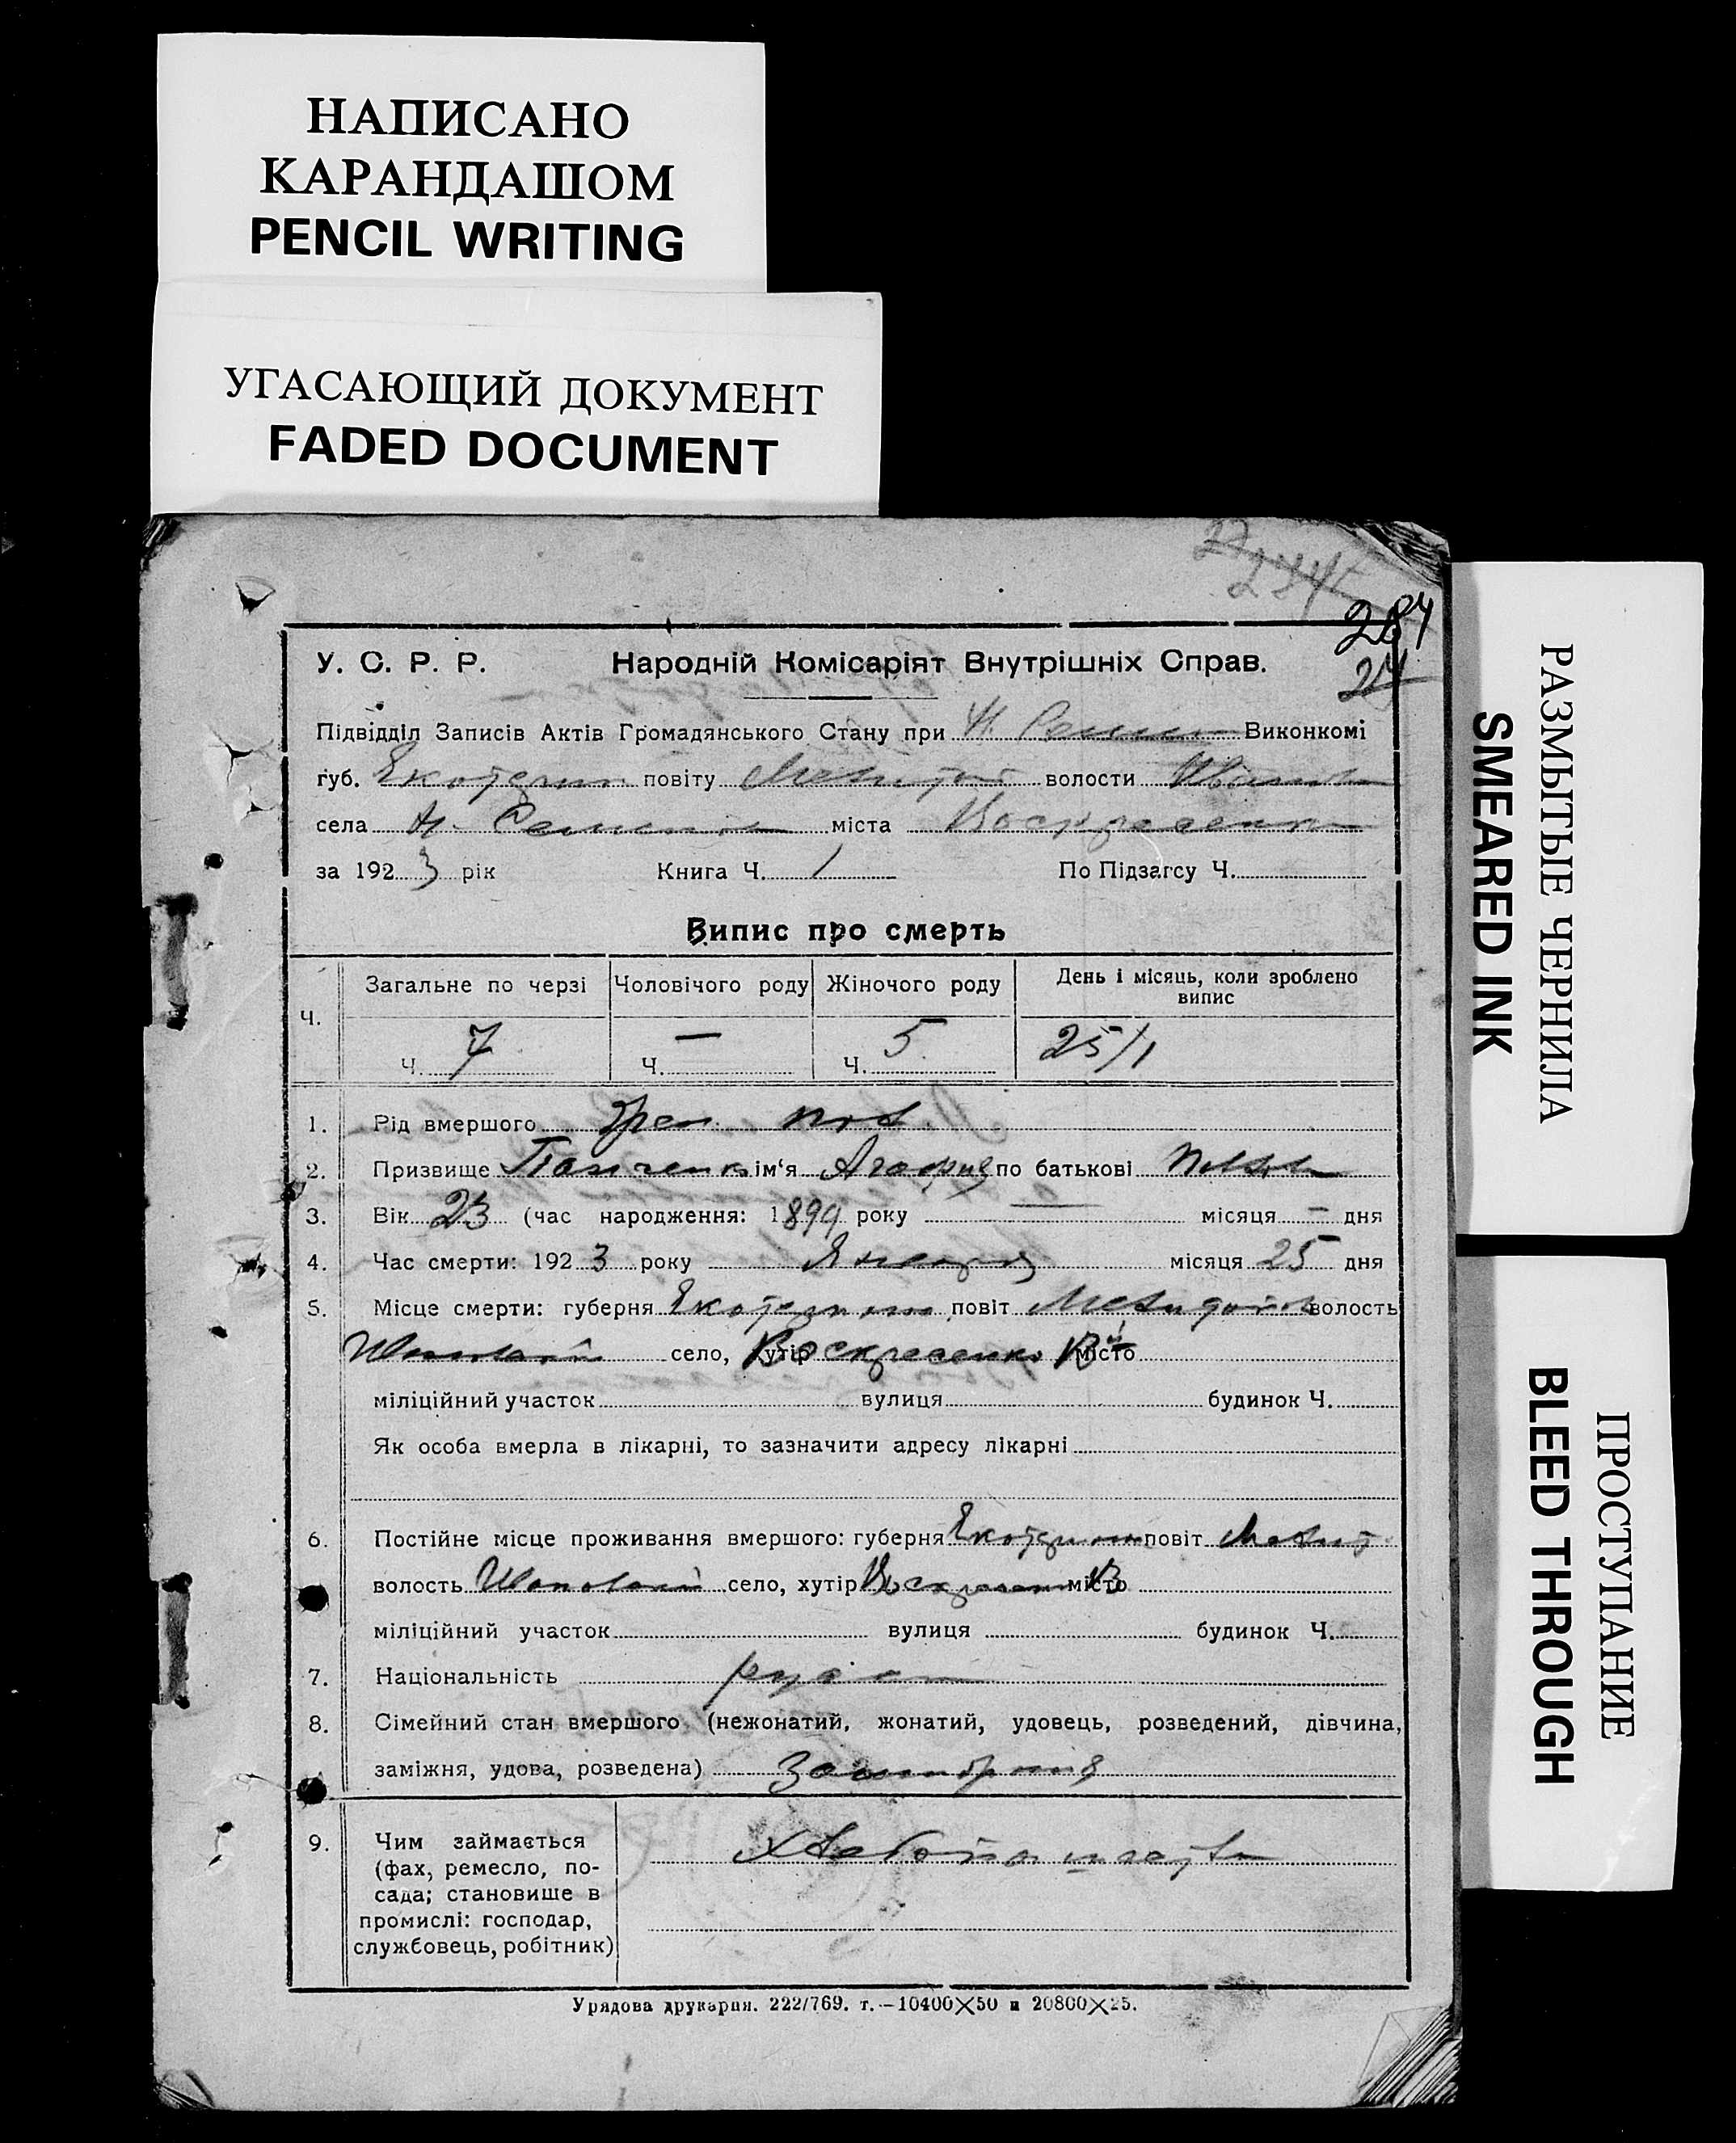 НАПИСАНО
КАРАНДАШОМ
PENCIL WRITING
УГАСАЮЩИЙ ДОКУМЕНТ
FADED DOCUMENT
284
24
У. С. Р. Р. Народній Комісаріят Внутрішніх Справ.
Підвідділ Записів Актів Громадянського Стану при Н. Виконкомі
губ. Екотерин повіту Мелитоп волости
села Н. міста Воскресенка
за 1923 рік Книга Ч. 1 По Підзагсу Ч.
Випис про смерть
Ч. Загальне по черзі Чоловічого роду Жіночого роду День і місяць, коли зроблено випис
Ч. 7 Ч. — Ч. 5 25/1
1. Рід вмершого Жен. пол
2. Призвище ім'я Агафия по батькові
3. Вік 23 (час народження: 1899 року — місяця — дня
4. Час смерти: 1923 року Января місяця 25 дня
5. Місце смерти: губерня Екотерин повіт Мелитопол волость
село, хутір Воскресенка місто
міліційний участок вулиця будинок Ч.
Як особа вмерла в лікарні, то зазначити адресу лікарні
6. Постійне місце проживання вмершого: губерня Екотерин повіт Мелит
волость село, хутір Воскресен місто
міліційний участок вулиця будинок Ч.
7. Національність
8. Сімейний стан вмершого (нежонатий, жонатий, удовець, розведений, дівчина,
заміжня, удова, розведена)
9. Чим займається
(фах, ремесло, по-
сада; становише в
промислі: господар,
службовець, робітник)
Урядова друкарня. 222/769. т.—10400×50 и 20800×25.
РАЗМЫТЫЕ ЧЕРНИЛА
SMEARED INK
ПРОСТУПАНИЕ
BLEED THROUGH